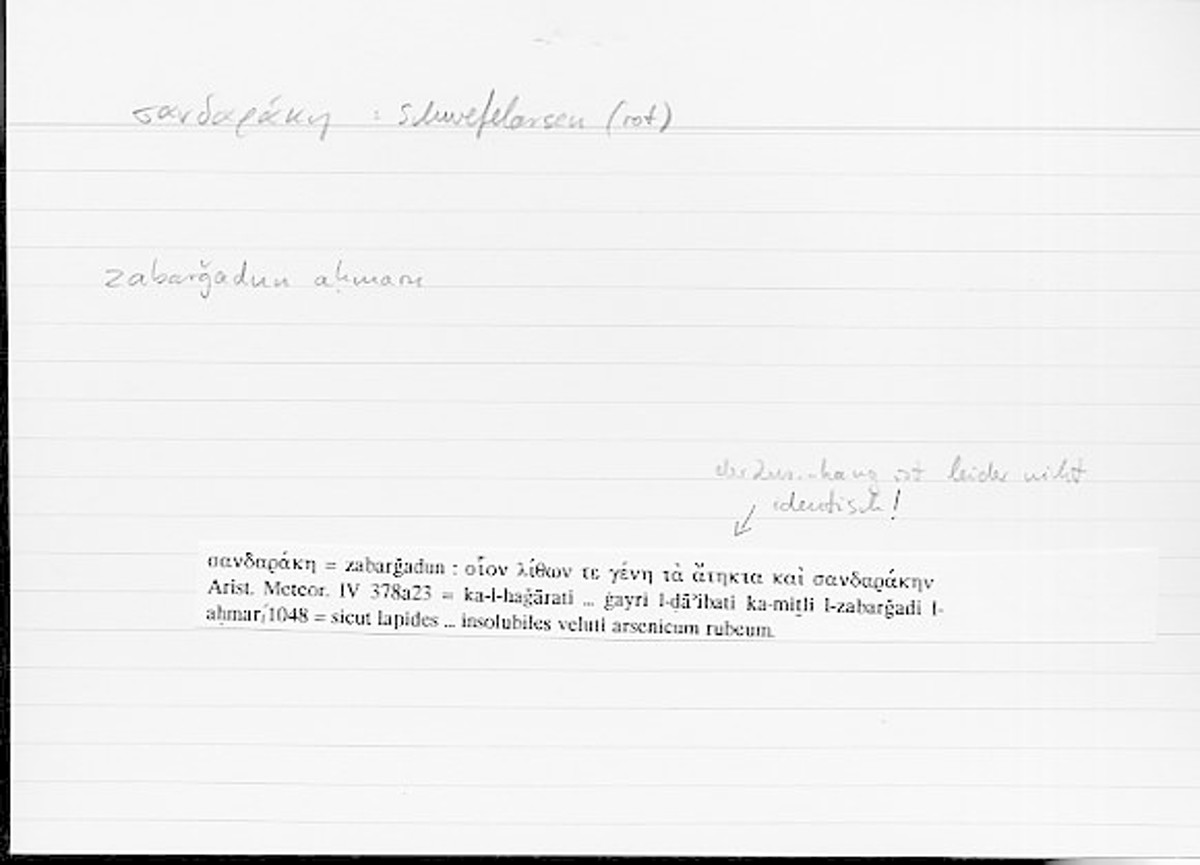 σανδαράκη : Schwefelarsen (rot)
zabarǧadun aḥmaru
der Zus.-hang ist leider nicht
identisch!
σανδαράκη = zabarǧadun : οἷον λίθων τε γένη τὰ ἄτηκτα καὶ σανδαράκην
Arist. Meteor. IV 378a23 = ka-l-ḥaǧārati ... ġayri l-ḏāʾibati ka-miṯli l-zabarǧadi l-
aḥmari 1048 = sicut lapides ... insolubiles veluti arsenicum rubeum.